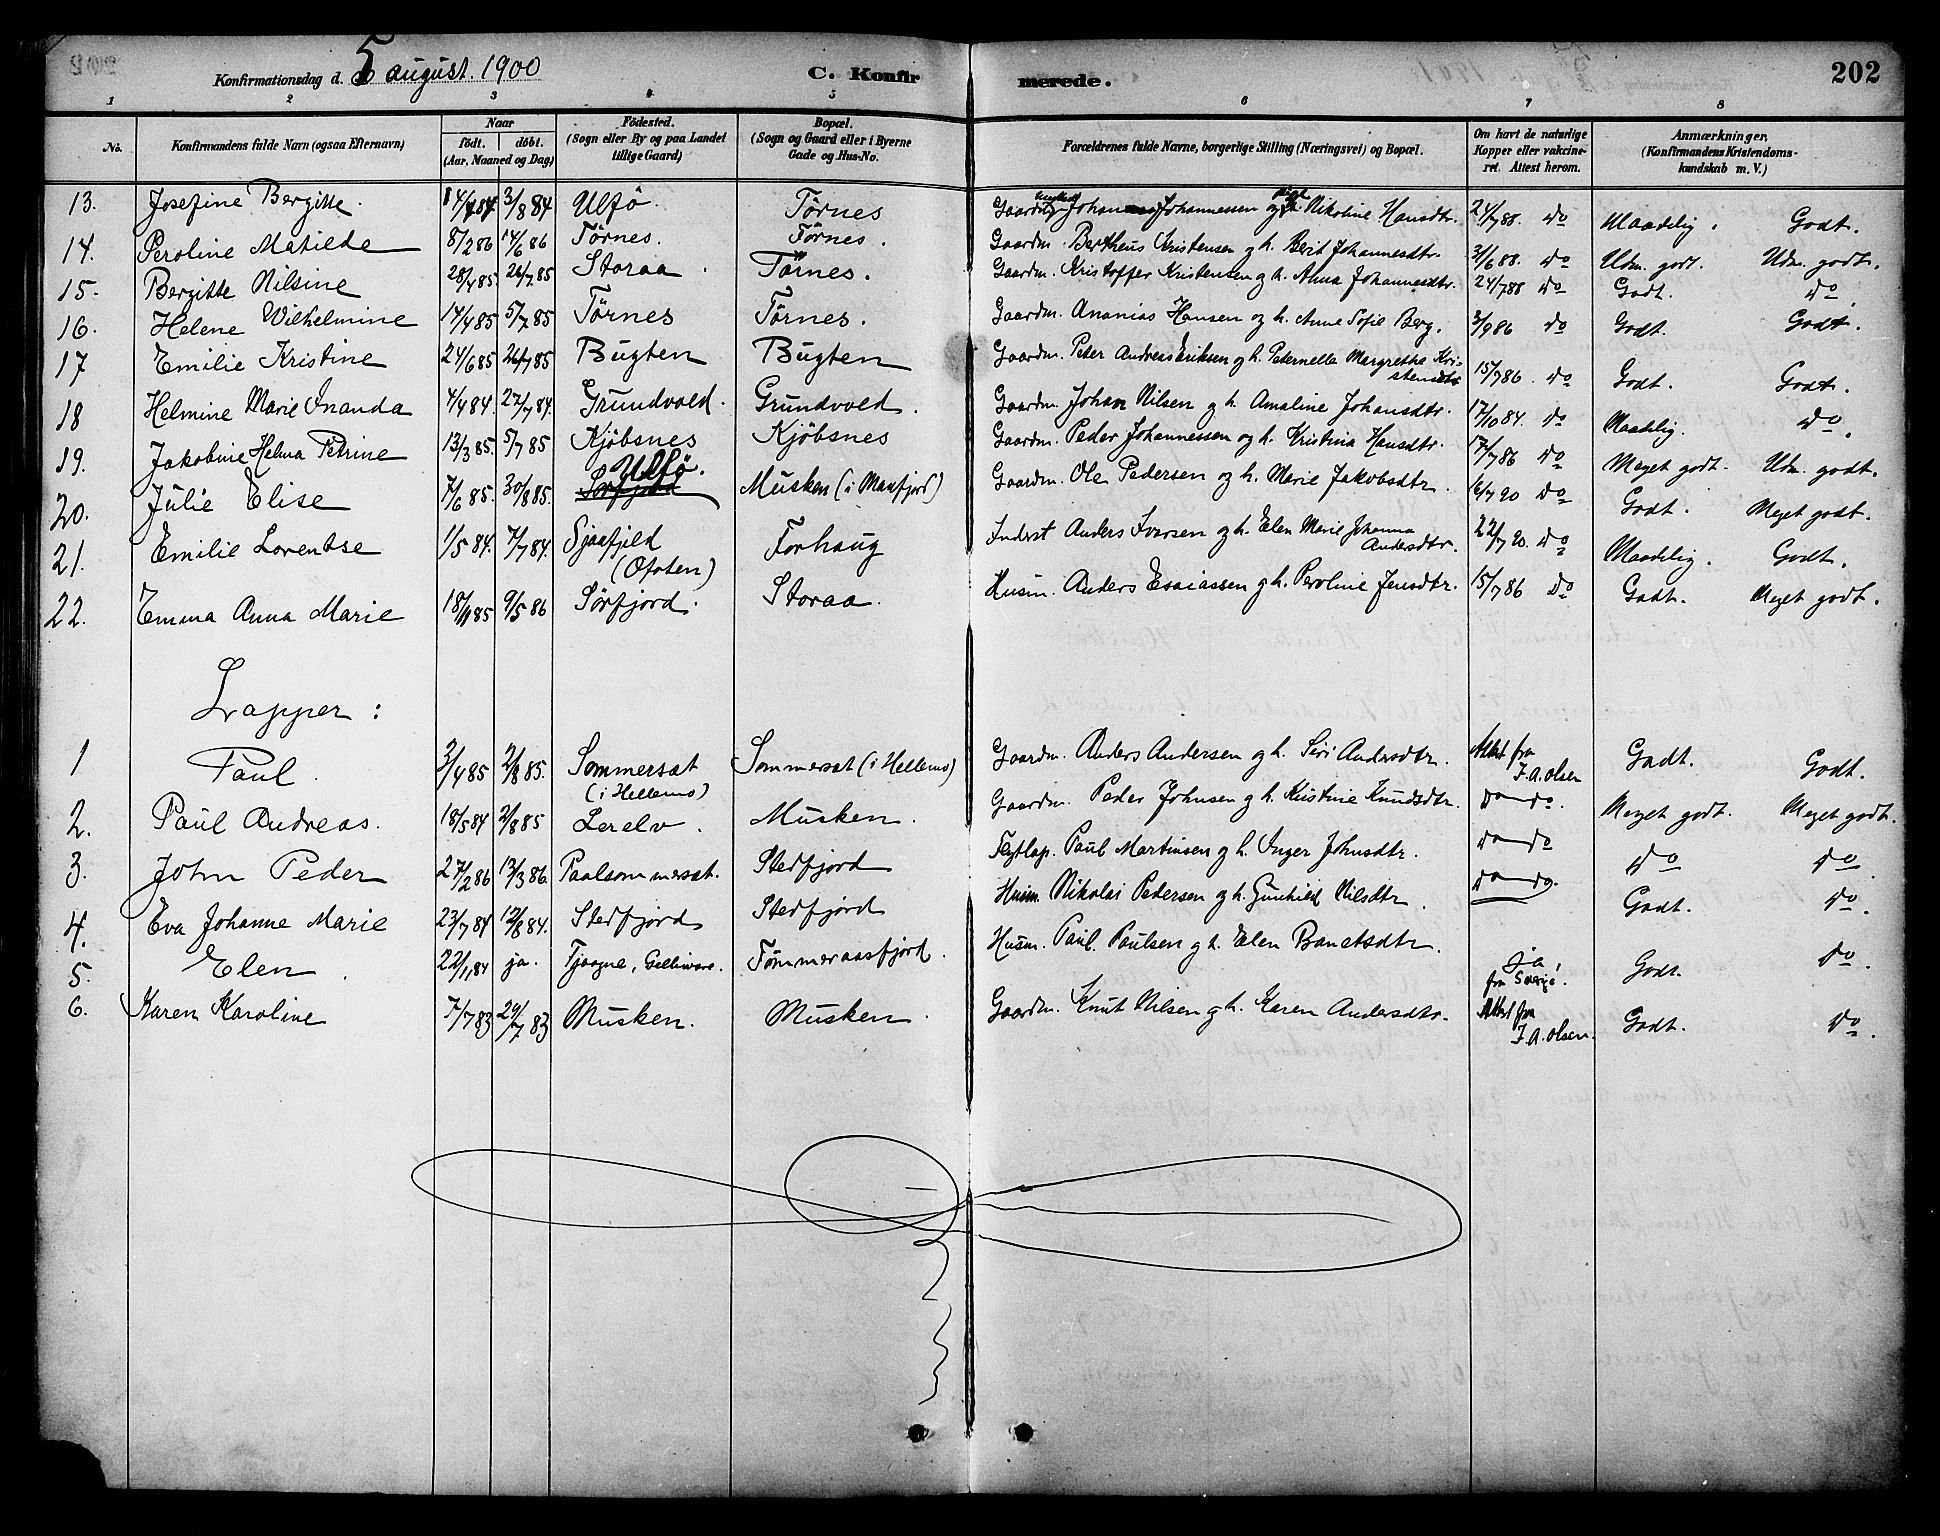 Konfirmationsdag d. 5 august. 1900 C. Konfirmerede. 202
1 2 3 4 5 6 7 8
No. Konfirmandens fulde Navn (ogsaa Efternavn) Naar födt. döbt. (Aar, Maaned og Dag) Födested. (Sogn eller By og paa Landet tillige Gaard) Bopæl. (Sogn og Gaard eller i Byerne Gade og Hus-No. Forældrenes fulde Navne, borgerlige Stilling (Næringsvei) og Bopæl. Om havt de naturlige Kopper eller vakcineret. Attest herom. Anmærkninger. (Konfirmandens Kristendomskundskab m. V.)
13. Josefine Bergitte. 14/7 84 3/8 84 Ulfö. Törnes Gaardm. Johan Johannessen og Nikoline Hansdtr. 24/7 88. Do Maadelig. Godt.
14. Peroline Matilde 8/2 86 14/6 86 Törnes. Törnes. Gaardm. Bertheus Kristensen og h. Berit Johannesdtr. 3/6 88. Do Udm. godt. Udm. godt.
15. Bergitte Nilsine 28/4 85. 26/7 85 Storaa. Törnes. Gaardm. Kristoffer Kristensen og h. Anna Johannesdtr. 24/7 88 Do Godt. Do.
16. Helene Wilhelmine 14/4 85 5/7 85 Törnes Törnes. Gaardm. Ananias Hansen og h. Anne Sofie Berg. 3/9 86 Do Godt. Godt.
17 Emilie Kristine 24/6 85 26/7 85 Bugten Bugten Gaardm. Peter Andreas Eriksen og h. Peternella Margrethe Kristensdtr 15/7 86. Do Godt. Godt.
18 Helmine Marie Inanda 4/4 84. 27/7 84. Grundvold. Grundvold. Gaardm. Johan Nilsen og h. Amaline Johansdtr. 17/10 84. Do Maadelig. Do.
19. Jakobine Helma Petrine 13/3 85. 5/7 85 Kjöbsnes Kjöbsnes Gaardm. Peder Johannessen og h. Kristina Hansdtr. 17/7 86 Do Meget godt. Udm. godt.
20. Julie Elise 7/6 85. 30/8 85. Ulfö. Sörfjord Musken (i Manfjord) Gaardm. Ole Pedersen og h. Marie Jakobsdtr. 6/7 90 Do Godt. Meget godt.
21. Emilie Lorentse 1/5 84. 7/7 84. Sjaafjeld (Ofoten) Forhaug Inderst Anders Iversen og h. Elen Marie Johanna Andersdtr. 22/7 90. Do Maadelig. Godt.
22. Emma Anna Marie 18/11 85 9/5 86 Sörfjord. Storaa. Husm. Anders Esaiassen og h. Peroline Jensdtr. 15/7 86 Do Godt. Meget godt.
Lapper:
1 Paul. 3/4 85 2/8 85. Sommersæt (i Hellemo) Sommersæt (i Hellemo) Gaardm. Anders Andersen og h. Siri Andersdtr. Attest fra J. A. Olsen Godt. Godt.
2. Paul Andreas. 18/5 84 2/8 85 Lerelv. Musken. Gaardm. Peder Johnsen og h. Kristine Knudsdtr. Do Do. Meget godt. Meget godt.
3. John Peder 27/2 86 13/3 86. Paalsommersæt. Stedfjord Flytlap. Paul Martinsen og h. Inger Johnsdtr. Do Do Do Do.
4. Eva Johanne Marie 23/7 84 12/8 84. Stedfjord Stedfjord Husm. Nikolai Pedersen og h. Gunhild Nilsdtr. Do Do. Godt. Do.
5. Elen. 22/1 84 ja. Tjaagne, Gellivare. Tömmeraasfjord. Husm. Paul Paulsen og h. Elen Bandtsdtr. ja! fra Sverige. Godt. Do.
6. Karen Karoline 7/7 83 29/7 83 Musken. Musken. Gaardm. Knut Nilsen og h. Karen Andersdtr. Attest fra J. A. Olsen. Godt. Do.